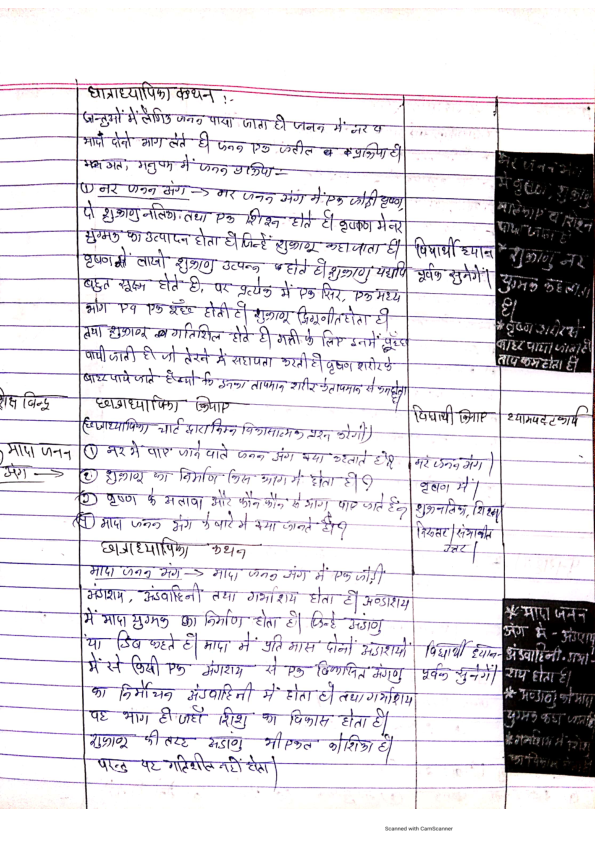 छात्राध्यापिका कथन :-
जन्तुओं में लैंगिक जनन पाया जाता है। जनन में नर व
मादा दोनों भाग लेते हैं। जनन एक जटील प्रक्रिया है।
मानव में जनन प्रक्रिया -
① नर जनन अंग → नर जनन अंग में एक जोड़ी वृषण,
दो शुक्राणु नलिका, तथा एक शिश्न होते हैं। वृषण में नर
युग्मक का उत्पादन होता है। जिन्हें शुक्राणु कहा जाता है।
वृषण में लाखों शुक्राणु उत्पन्न होते हैं। शुक्राणु यद्यपि
बहुत सूक्ष्म होते है, पर प्रत्येक में एक सिर, एक मध्य
भाग एव एक पूँछ होती है। शुक्राणु
तथा शुक्राणु गतिशिल होते है। गती के लिए इनमें पूँछ
पायी जाती है जो तैरने में सहायता करती है। वृषण शरीर के
बाहर पाये जाते हैं क्यों कि इनका तापमान शरीर के तापमान से कम होता है।
विद्यार्थी ध्यान
पूर्वक सुनेंगे।
नर जनन अंग
में वृषण, शुक्राणु
नलिकाए व शिश्न
पाए जाते है
* शुक्राणु नर
युग्मक कहलाता
है।
* वृषण शरीर से
बाहर पाया जाता है
ताप कम होता है।
बिन्दु
छात्राध्यापिका क्रियाए
विद्यार्थी क्रियाए
श्यामपट्टकार्य
(छात्राध्यापिका चार्ट द्वारा निम्न विकासात्मक प्रश्न करेंगी)
मादा जनन
अंग →
① नर में पाए जाने वाले जनन अंग क्या कहलाते है?
नर जनन अंग।
② शुक्राणु का निर्माण किस भाग में होता है?
वृषण में।
③ वृषण के अलावा और कौन कौन से भाग पाए जाते हैं?
शुक्रनलिका, शिश्न।
④ मादा जनन अंग के बारे में क्या जानते है?
निरुत्तर / संभावित
उत्तर।
छात्राध्यापिका कथन
मादा जनन अंग → मादा जनन अंग में एक जोड़ी
अंडाशय, अंडवाहिनी तथा गर्भाशय होता है। अण्डाशय
में मादा युग्मक का निर्माण होता है। जिन्हे अंडाणु
या डिंब कहते है। मादा में प्रति मास दोनों अंडाशयों
में से किसी एक अंडाशय से एक विकसित अंडाणु
का निर्मोचन अंडवाहिनी में होता है। तथा गर्भाशय
वह भाग है जहाँ शिशु का विकास होता है।
शुक्राणु की तरह अंडाणु भी एकल कोशिका है।
परन्तु यह गतिशील नहीं होता।
विद्यार्थी ध्यान-
पूर्वक सुनेंगे।
* मादा जनन
अंग में - अंडाशय
अंडवाहिनी, गर्भा
शय होता है।
* अण्डाणु को मादा
युग्मक कहा जाता है
Scanned with CamScanner